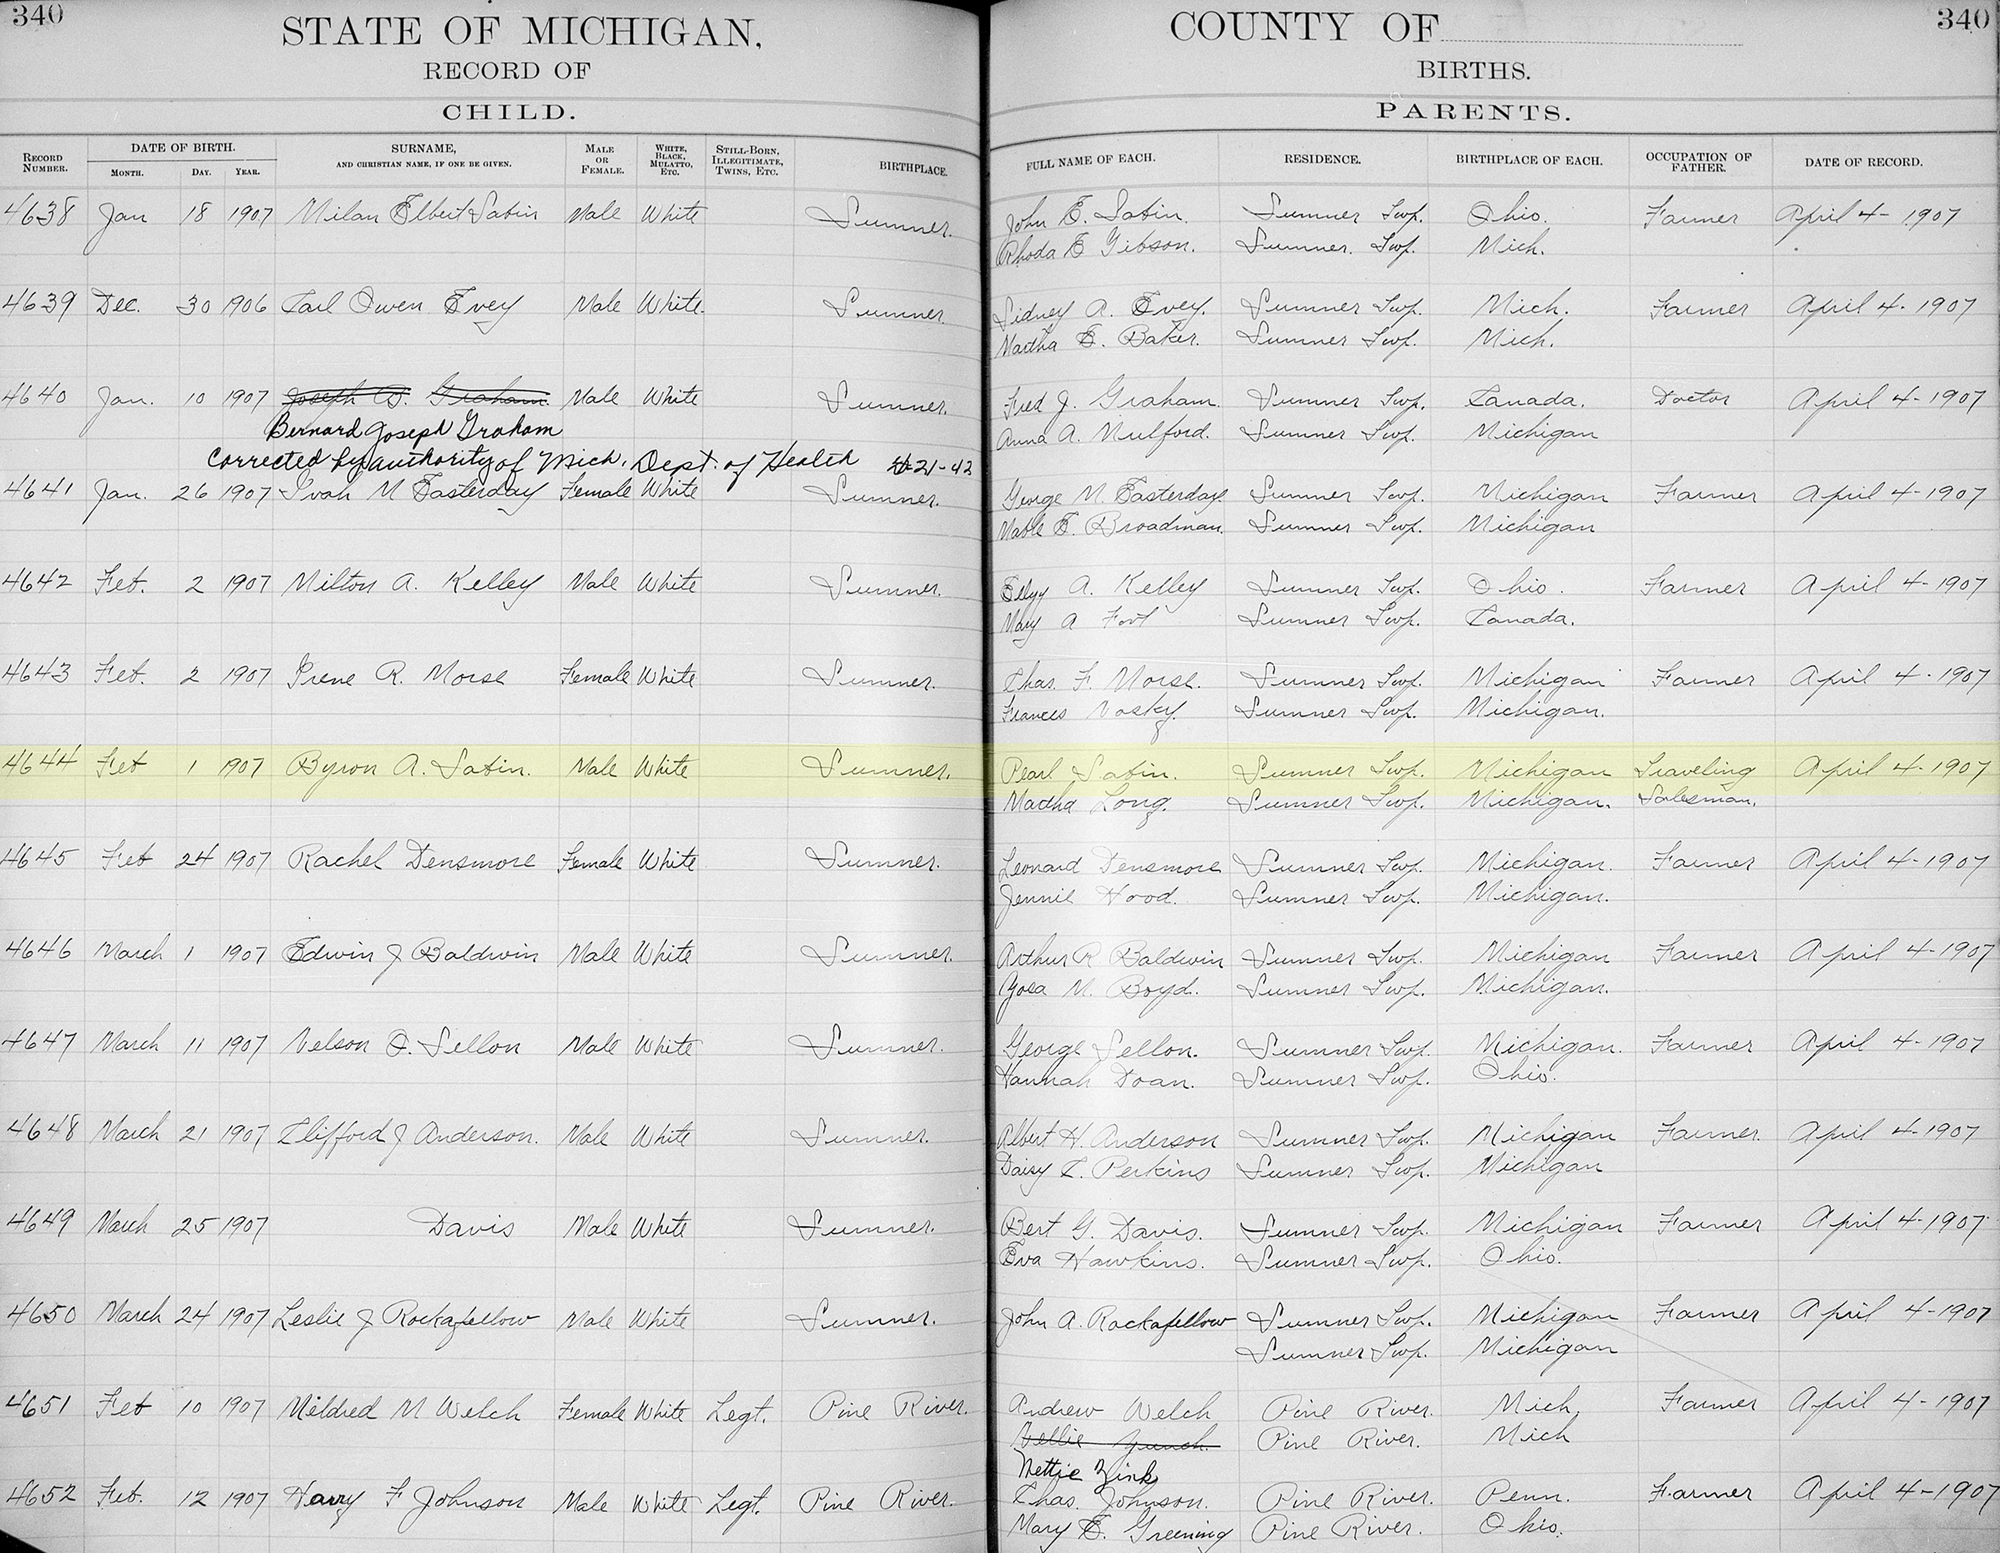 340
STATE OF MICHIGAN,
COUNTY OF
340
RECORD OF
BIRTHS.
CHILD.
PARENTS.
RECORD NUMBER. DATE OF BIRTH. MONTH. DAY. YEAR. SURNAME, AND CHRISTIAN NAME, IF ONE BE GIVEN. MALE OR FEMALE. WHITE, BLACK, MULATTO, ETC. STILL-BORN, ILLEGITIMATE, TWINS, ETC. BIRTHPLACE. FULL NAME OF EACH. RESIDENCE. BIRTHPLACE OF EACH. OCCUPATION OF FATHER. DATE OF RECORD.
4638 Jan 18 1907 Milan Elbert Sabin Male White Sumner. John E. Sabin. Sumner Twp. Ohio. Farmer April 4-1907
Rhoda E Gibson. Sumner. Twp. Mich.
4639 Dec. 30 1906 Carl Owen Evey Male White. Sumner. Sidney A. Evey. Sumner Twp. Mich. Farmer April 4-1907
Martha E. Baker. Sumner Twp. Mich.
4640 Jan. 10 1907 Joseph B. Graham. Male White Sumner. Fred J. Graham. Sumner Twp. Canada. Doctor April 4-1907
Bernard Joseph Graham Anna A. Mulford. Sumner Twp. Michigan
Corrected by authority of Mich. Dept. of Health 21-42
4641 Jan. 26 1907 Ivah M Easterday Female White Sumner. George M. Easterday. Sumner Twp. Michigan Farmer April 4-1907
Mable E. Broadman. Sumner Twp. Michigan
4642 Feb. 2 1907 Milton A. Kelley Male White Sumner. A. Kelley Sumner Twp. Ohio. Farmer April 4-1907
Mary A Foot Sumner Twp. Canada.
4643 Feb. 2 1907 Irene R. Morse Female White Sumner. Chas. F. Morse. Sumner Twp. Michigan Farmer April 4-1907
Frances Vosky. Sumner Twp. Michigan.
4644 Feb 1 1907 Byron A. Sabin. Male White Sumner. Pearl Sabin. Sumner Twp. Michigan Traveling April 4-1907
Martha Long. Sumner Twp. Michigan. Salesman.
4645 Feb 24 1907 Rachel Densmore Female White Sumner. Leonard Densmore Sumner Twp. Michigan. Farmer April 4-1907
Jennie Hood. Sumner Twp. Michigan.
4646 March 1 1907 Edwin J Baldwin Male White Sumner. Arthur R Baldwin Sumner Twp. Michigan Farmer April 4-1907
M. Boyd. Sumner Twp. Michigan.
4647 March 11 1907 Nelson O. Sellon Male White Sumner. George Sellon. Sumner Twp. Michigan. Farmer April 4-1907
Hannah Doan. Sumner Twp. Ohio.
4648 March 21 1907 Clifford J Anderson. Male White Sumner. Albert H. Anderson Sumner Twp. Michigan Farmer. April 4-1907
Daisy C. Perkins Sumner Twp. Michigan
4649 March 25 1907 Davis Male White Sumner. Bert G. Davis. Sumner Twp. Michigan Farmer April 4-1907
Eva Hawkins. Sumner Twp. Ohio.
4650 March 24 1907 Leslie J Rockafellow Male White Sumner. John A. Rockafellow Sumner Twp. Michigan Farmer April 4-1907
Sumner Twp. Michigan
4651 Feb 10 1907 Mildred M Welch Female White Legt. Pine River. Andrew Welch Pine River. Mich. Farmer April 4-1907
Nellie Pine River. Mich
Nettie Zink
4652 Feb. 12 1907 Harry F Johnson Male White Legt. Pine River. Chas. Johnson. Pine River. Penn. Farmer April 4-1907
Mary E. Greening Pine River. Ohio.